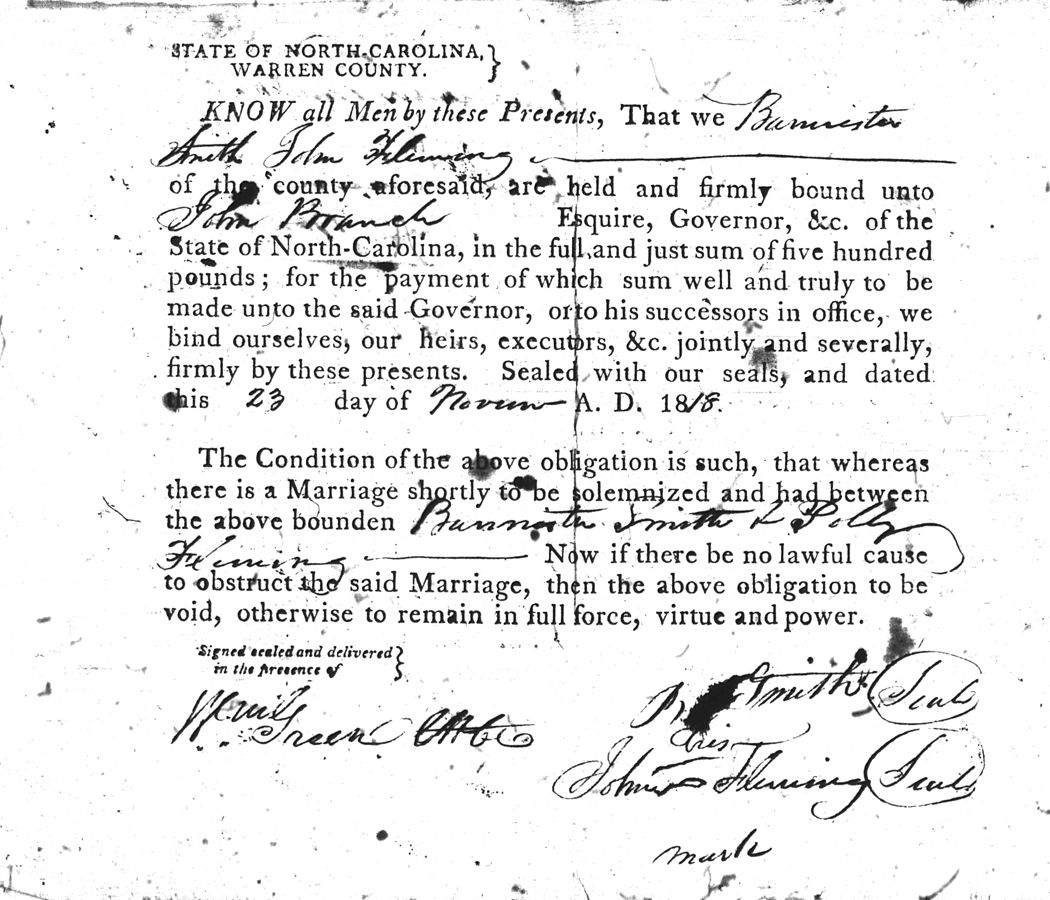 STATE OF NORTH-CAROLINA, }
WARREN COUNTY.
KNOW all Men by these Presents, That we Bannister
Smith John Fleming
of the county aforesaid, are held and firmly bound unto
John Branch Esquire, Governor, &c. of the
State of North-Carolina, in the full, and just sum of five hundred
pounds; for the payment of which sum well and truly to be
made unto the said Governor, or to his successors in office, we
bind ourselves, our heirs, executors, &c. jointly and severally,
firmly by these presents. Sealed with our seals, and dated
this 23 day of Novem A. D. 1818.
The Condition of the above obligation is such, that whereas
there is a Marriage shortly to be solemnized and had between
the above bounden Bannister Smith & Polly
Fleming Now if there be no lawful cause
to obstruct the said Marriage, then the above obligation to be
void, otherwise to remain in full force, virtue and power.
Signed sealed and delivered }
in the presence of
B Smith Seal
Green
his
John Fleming Seal
mark